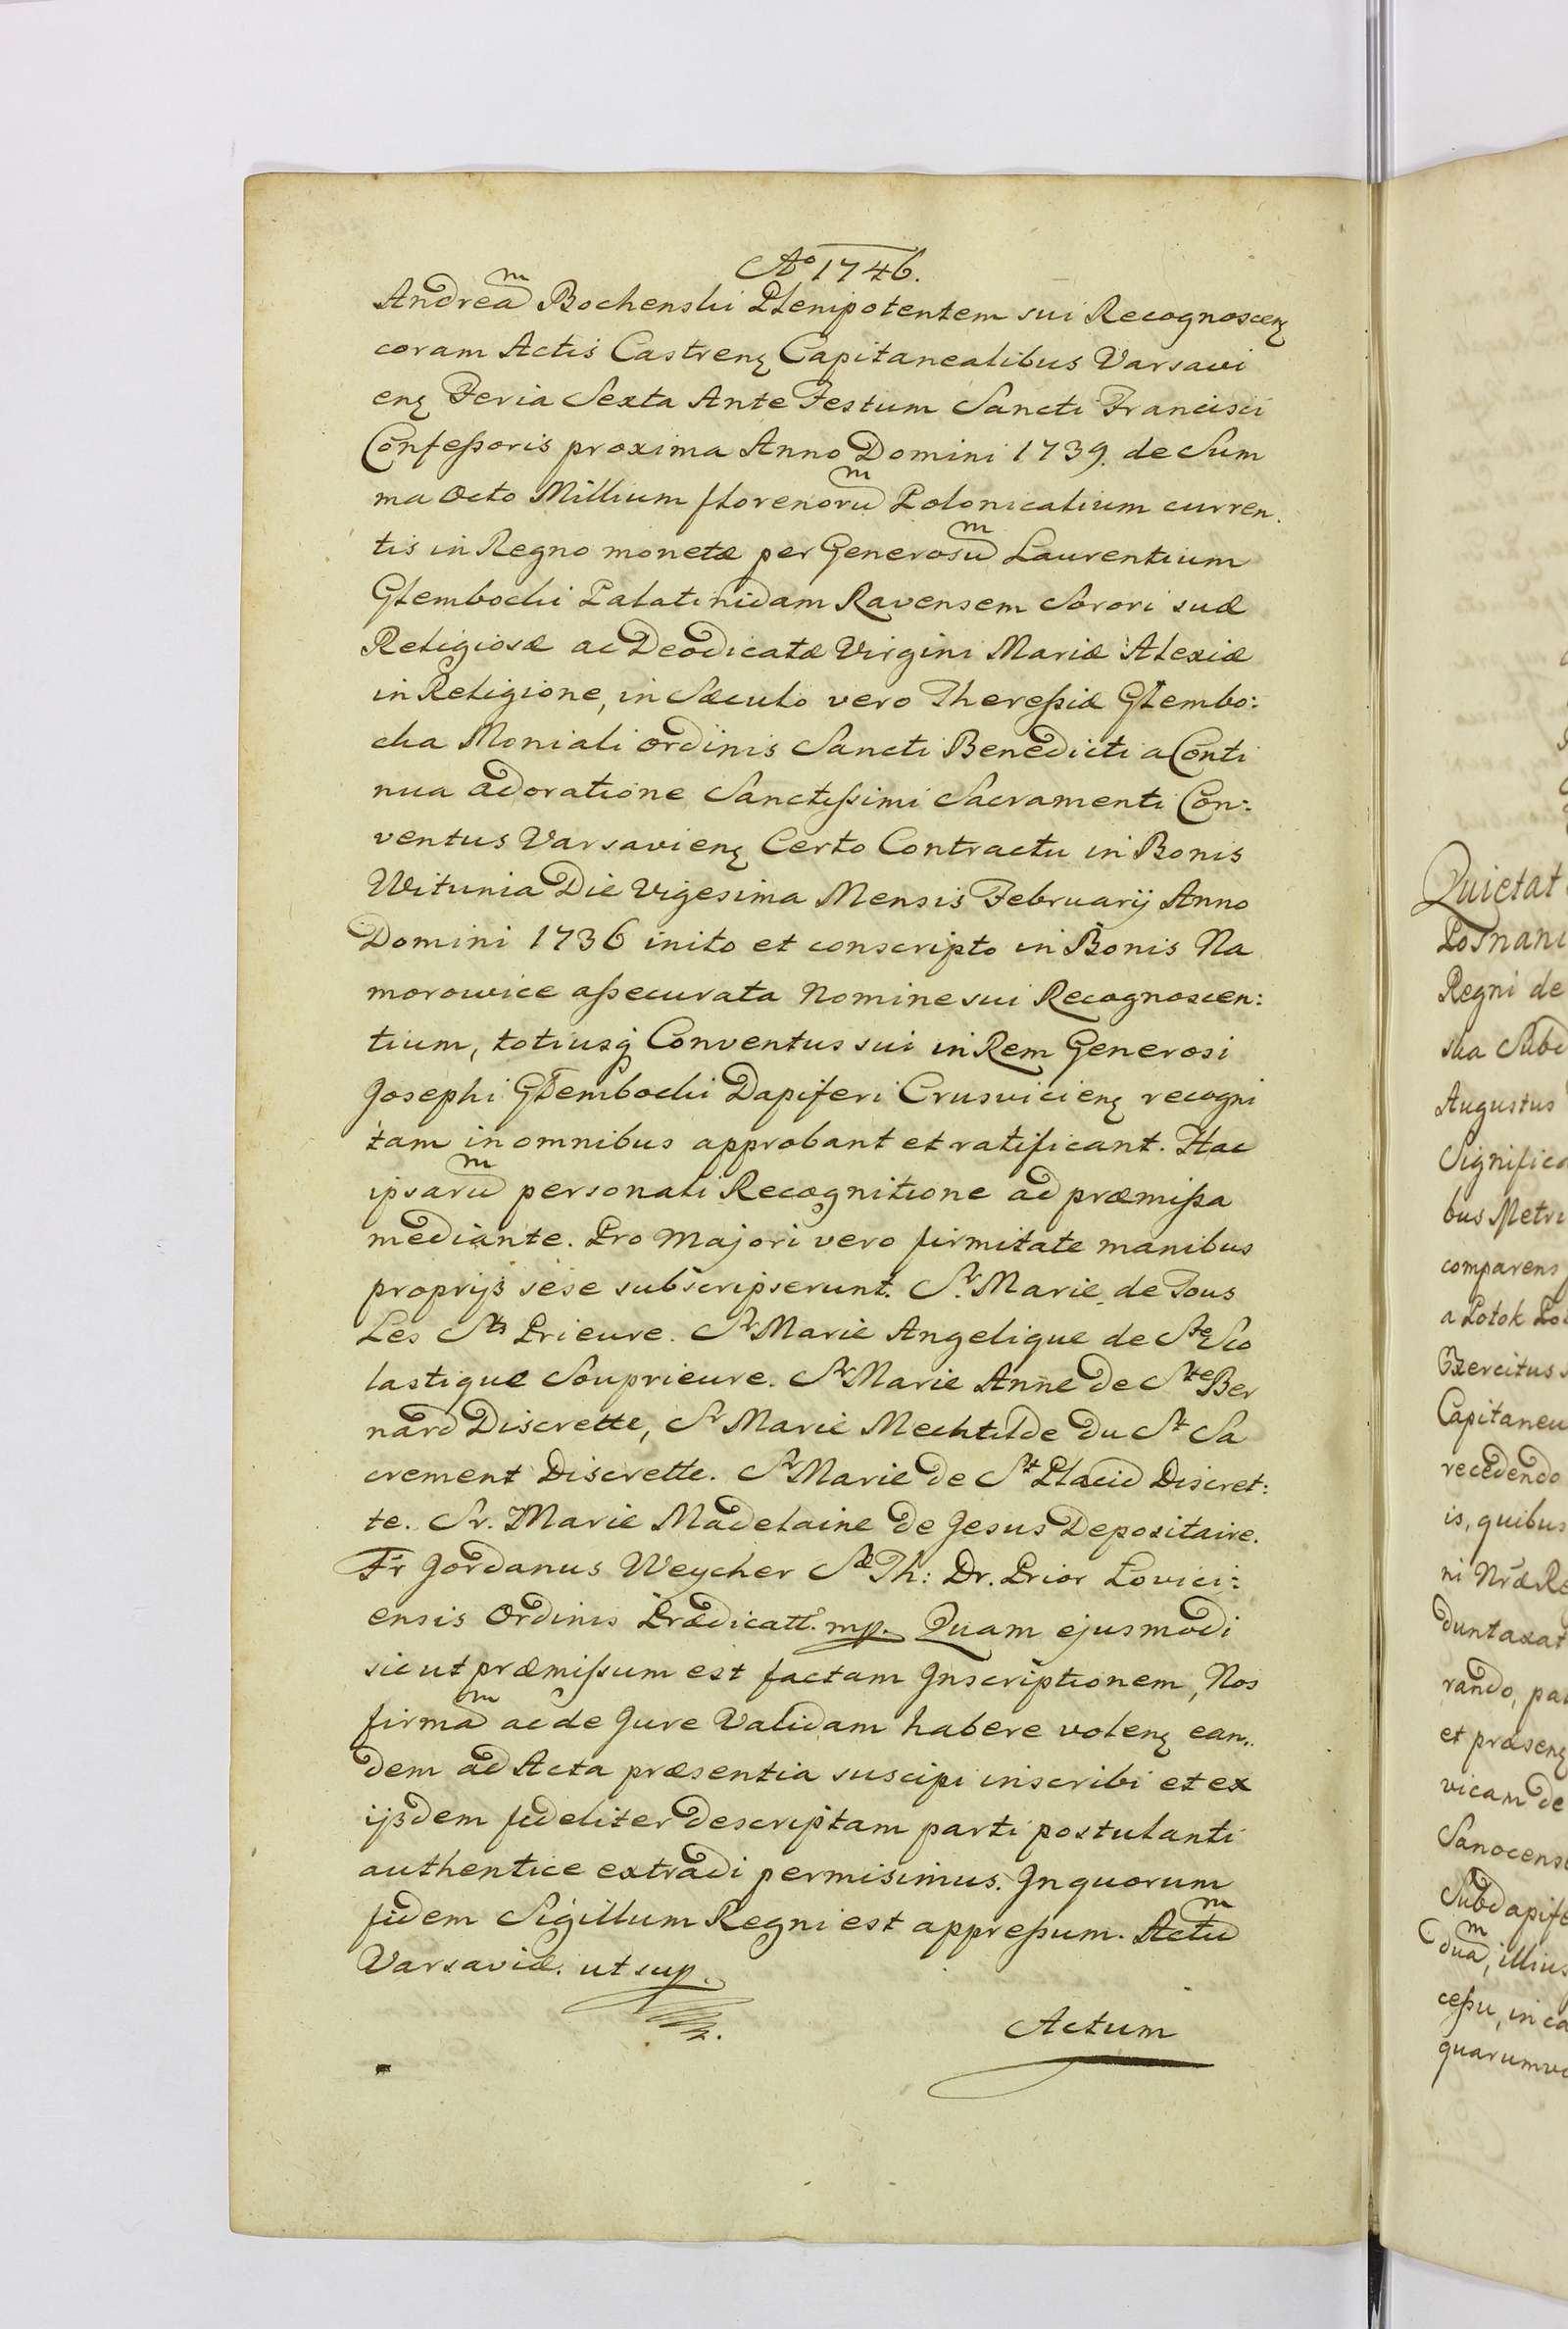 Aº 1746.
Andream Bochenski Plenipotentem sui Recognoscenʒ
coram Actis Castrenʒ Capitanealibus Varsavi
enʒ Feria Sexta Ante Festum Sancti Francisci
Confeſsoris proxima Anno Domini 1739. de Sum
ma Octo Millium florenorum Polonicalium curren.
tis in Regno monetæ per Generosum Laurentium
Głembocki Palatinidam Ravensem Sorori suæ
Religiosæ ac Deodicatæ Virgini Mariæ Alexiæ
in Religione, in Sæculo vero Thereſsiæ Głembo:
cka Moniali ordinis Sancti Benedicti a Conti
nua adoratione Sanctiſsimi Sacramenti Con:
ventus Varsavienʒ Certo Contractu in Bonis
Witunia Die Vigesima Mensis Februarij Anno
Domini 1736 inito et conscripto in Bonis Na
morowice aſsecurata Nomine sui Recognoscen:
tium, totiusq Conventus sui in Rem Generosi
Josephi Głembocki Dapiferi Crusvicienʒ recogni
tam in omnibus approbant et ratificant. Hac
ipsarum personali Recognitione ad præmiſsa
mediante. Pro Majori vero firmitate manibus
proprijs sese subscripserunt. Sr. Marie de Tous
Les Sts Prieure. Sr Marie Angelique de Ste Sco
lastique Souprieure. Sr Marie Anne de Ste Ber
nard Discrette, Sr Marie Mechtilde du St Sa
crement Discrette. Sr Marie de St Placid Discret:
te. Sr. Marie Madelaine de Jesus Depositaire.
Fr Jordanus Weycher Sæ Th: Dr. Prior Łovici:
ensis Ordinis Prædicatt. mp. Quam ejusmodi
sicut præmiſsum est factam Inscriptionem, Nos
firmam ac de Jure Validam habere volenʒ ean.
dem ad Acta præsentia suscipi inscribi et ex
ijsdem fideliter descriptam parti postulanti
authentice extradi permisimus. In quorum
fidem Sigillum Regni est appreſsum. Actum
Varsaviæ. ut sup.
Actum
Quietat
Posnani
Regni de
ska Subd
Augustus
Significa
bus Metri
comparens
a Potok Po
Exercitus
Capitaneu
recedendo
is, quibus
ni Nræ Re
duntaxat
rando, pa
et præsenʒ
vicam de
Sanocens
Subdapife
duam, illius
ceſsu, in ca
quarumv